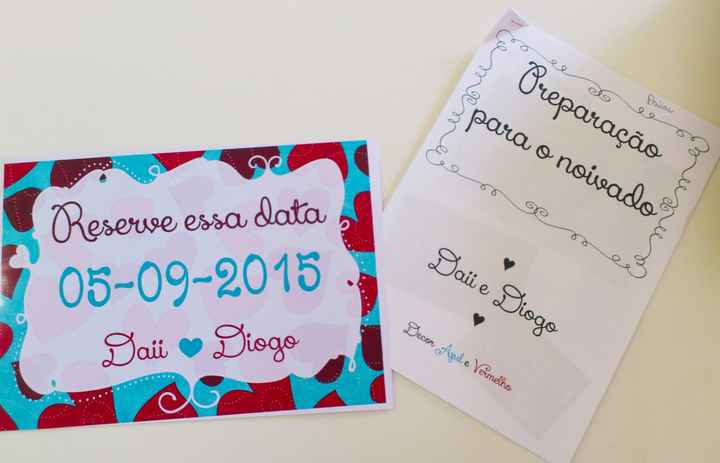 Reserve essa data
05-09-2015
Daii Diogo
Preparação
para o noivado
Daii e Diogo
Decor Azul e Vermelho